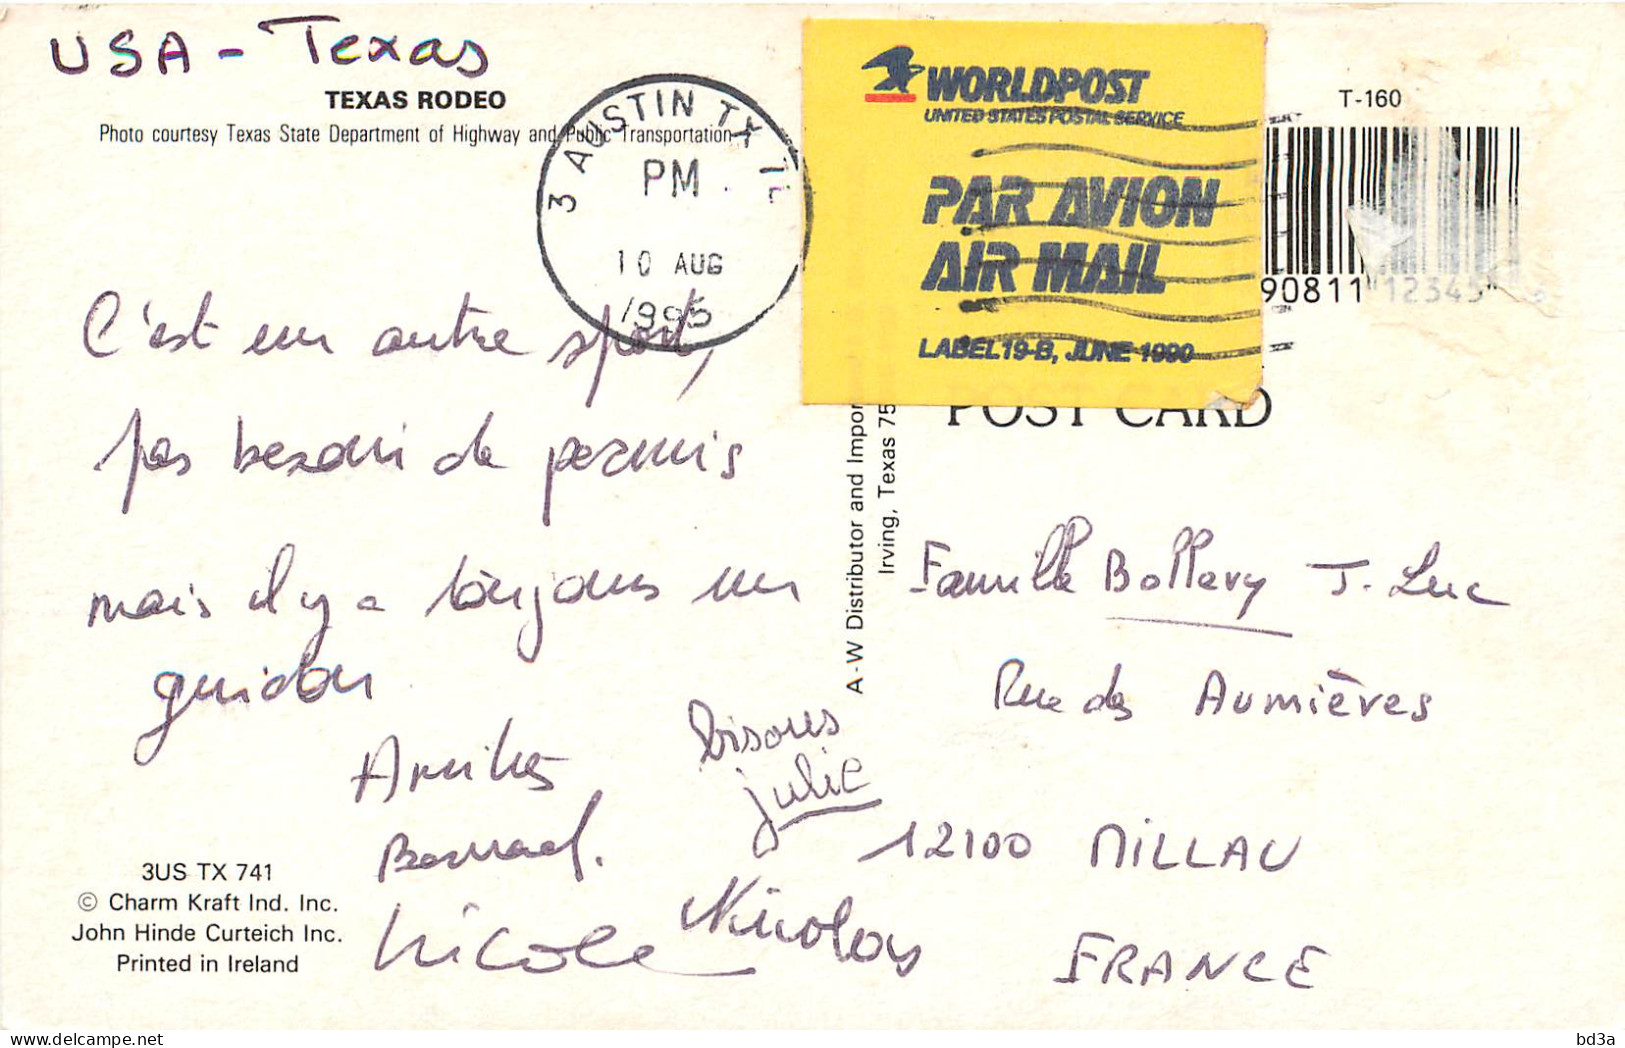 USA - Texas
TEXAS RODEO
Photo courtesy Texas State Department of Highway and Public Transportation
3 AUSTIN TX
PM
10 AUG
1995
WORLDPOST
UNITED STATES POSTAL SERVICE
PAR AVION
AIR MAIL
LABEL 19-B, JUNE 1990
T-160
90811 12345
POST CARD
C'est un autre sport,
pas besoin de permis
mais il y a toujours un
guidon
Amitiés
Bernard.
Nicole
Bisous
Julie
Nicolas
A-W Distributor and Impor
Irving, Texas 75
Famille Bollery J. Luc
Rue des Aumières
12100 MILLAU
FRANCE
3US TX 741
© Charm Kraft Ind. Inc.
John Hinde Curteich Inc.
Printed in Ireland
delcampe.net
bd3a